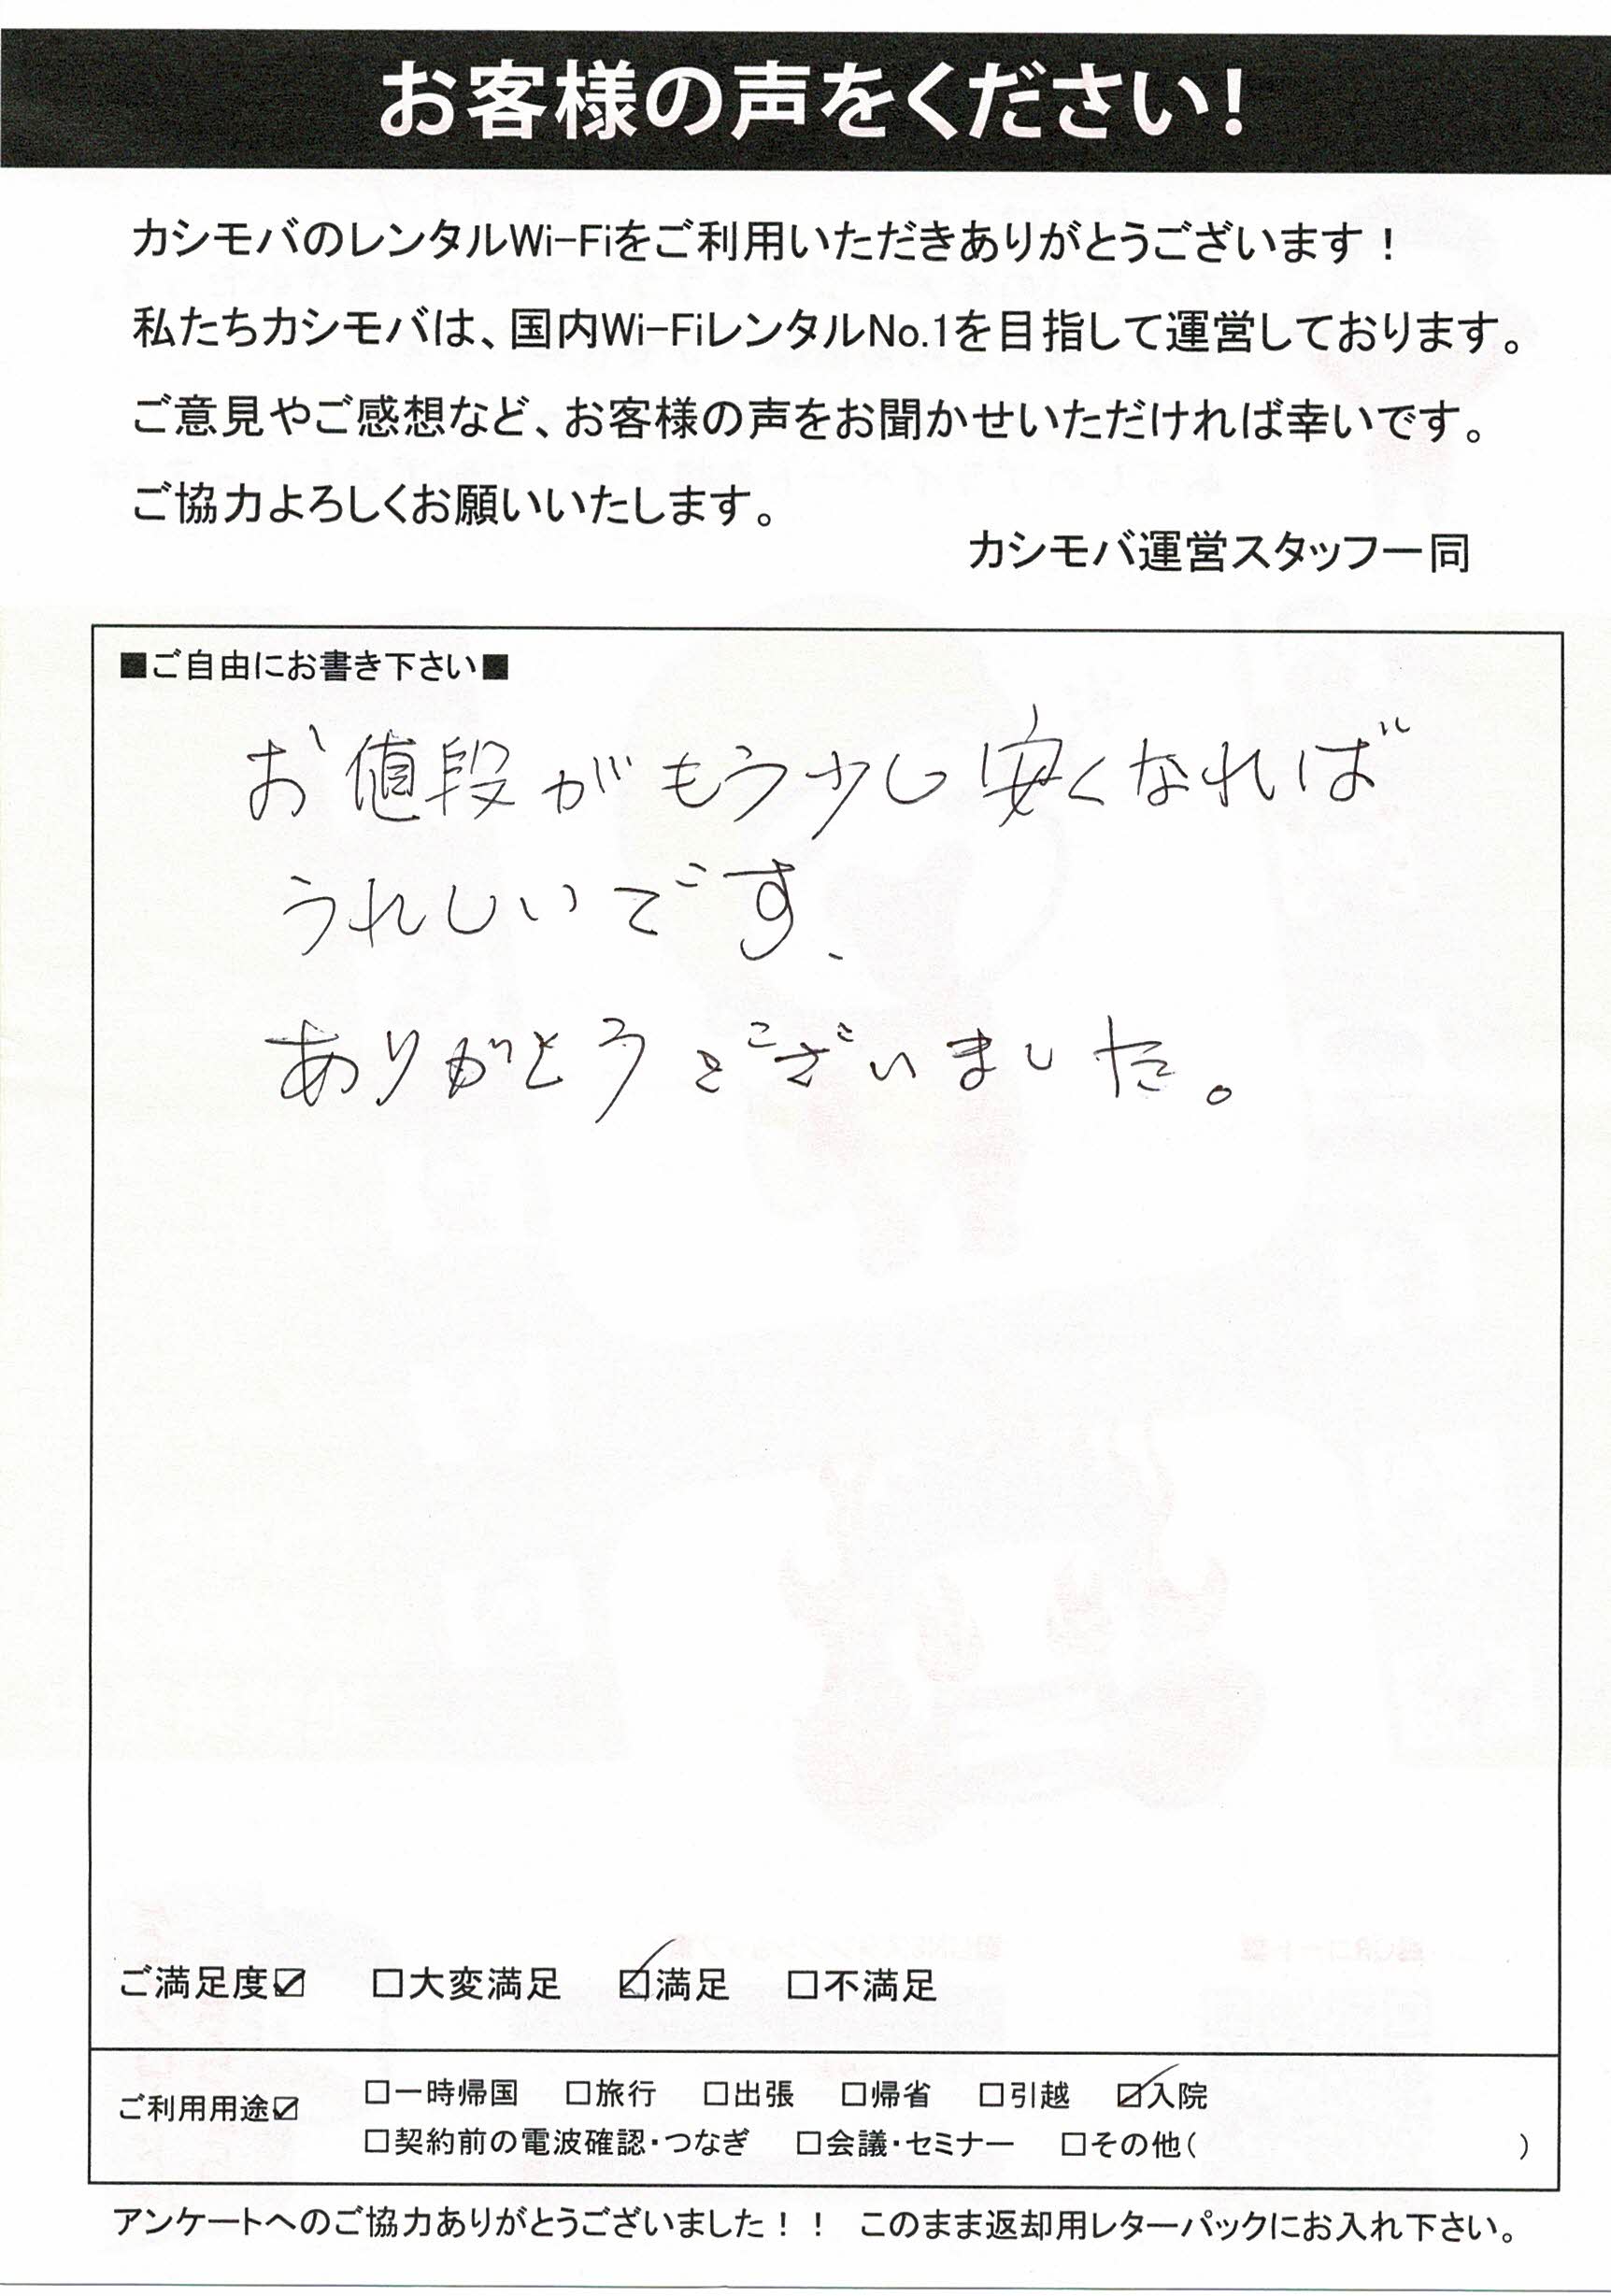 お客様の声をください!
カシモバのレンタルWi-Fiをご利用いただきありがとうございます！
私たちカシモバは、国内Wi-FiレンタルNo.1を目指して運営しております。
ご意見やご感想など、お客様の声をお聞かせいただければ幸いです。
ご協力よろしくお願いいたします。
カシモバ運営スタッフ一同
■ご自由にお書き下さい■
お値段がもう少し安くなれば
うれしいです、
ありがとうございました。
ご満足度☑ □大変満足 ☑満足 □不満足
ご利用用途☑ □一時帰国 □旅行 □出張 □帰省 □引越 ☑入院
□契約前の電波確認・つなぎ □会議・セミナー □その他( )
アンケートへのご協力ありがとうございました！！ このまま返却用レターパックにお入れ下さい。